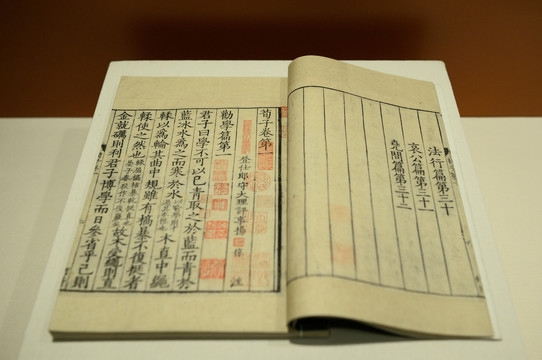 法行篇第三十
哀公篇第三十一
堯問篇第三十二
荀子卷第一
登仕郎守大理評事楊 倞 注
勸學篇第一
君子曰學不可以已青取之於藍而青於
藍冰水爲之而寒於水 木直中繩
輮以爲輪其曲中規雖有槁暴不復挺者
輮使之然也 故木受繩則直
金就礪則利君子博學而日叅省乎己則